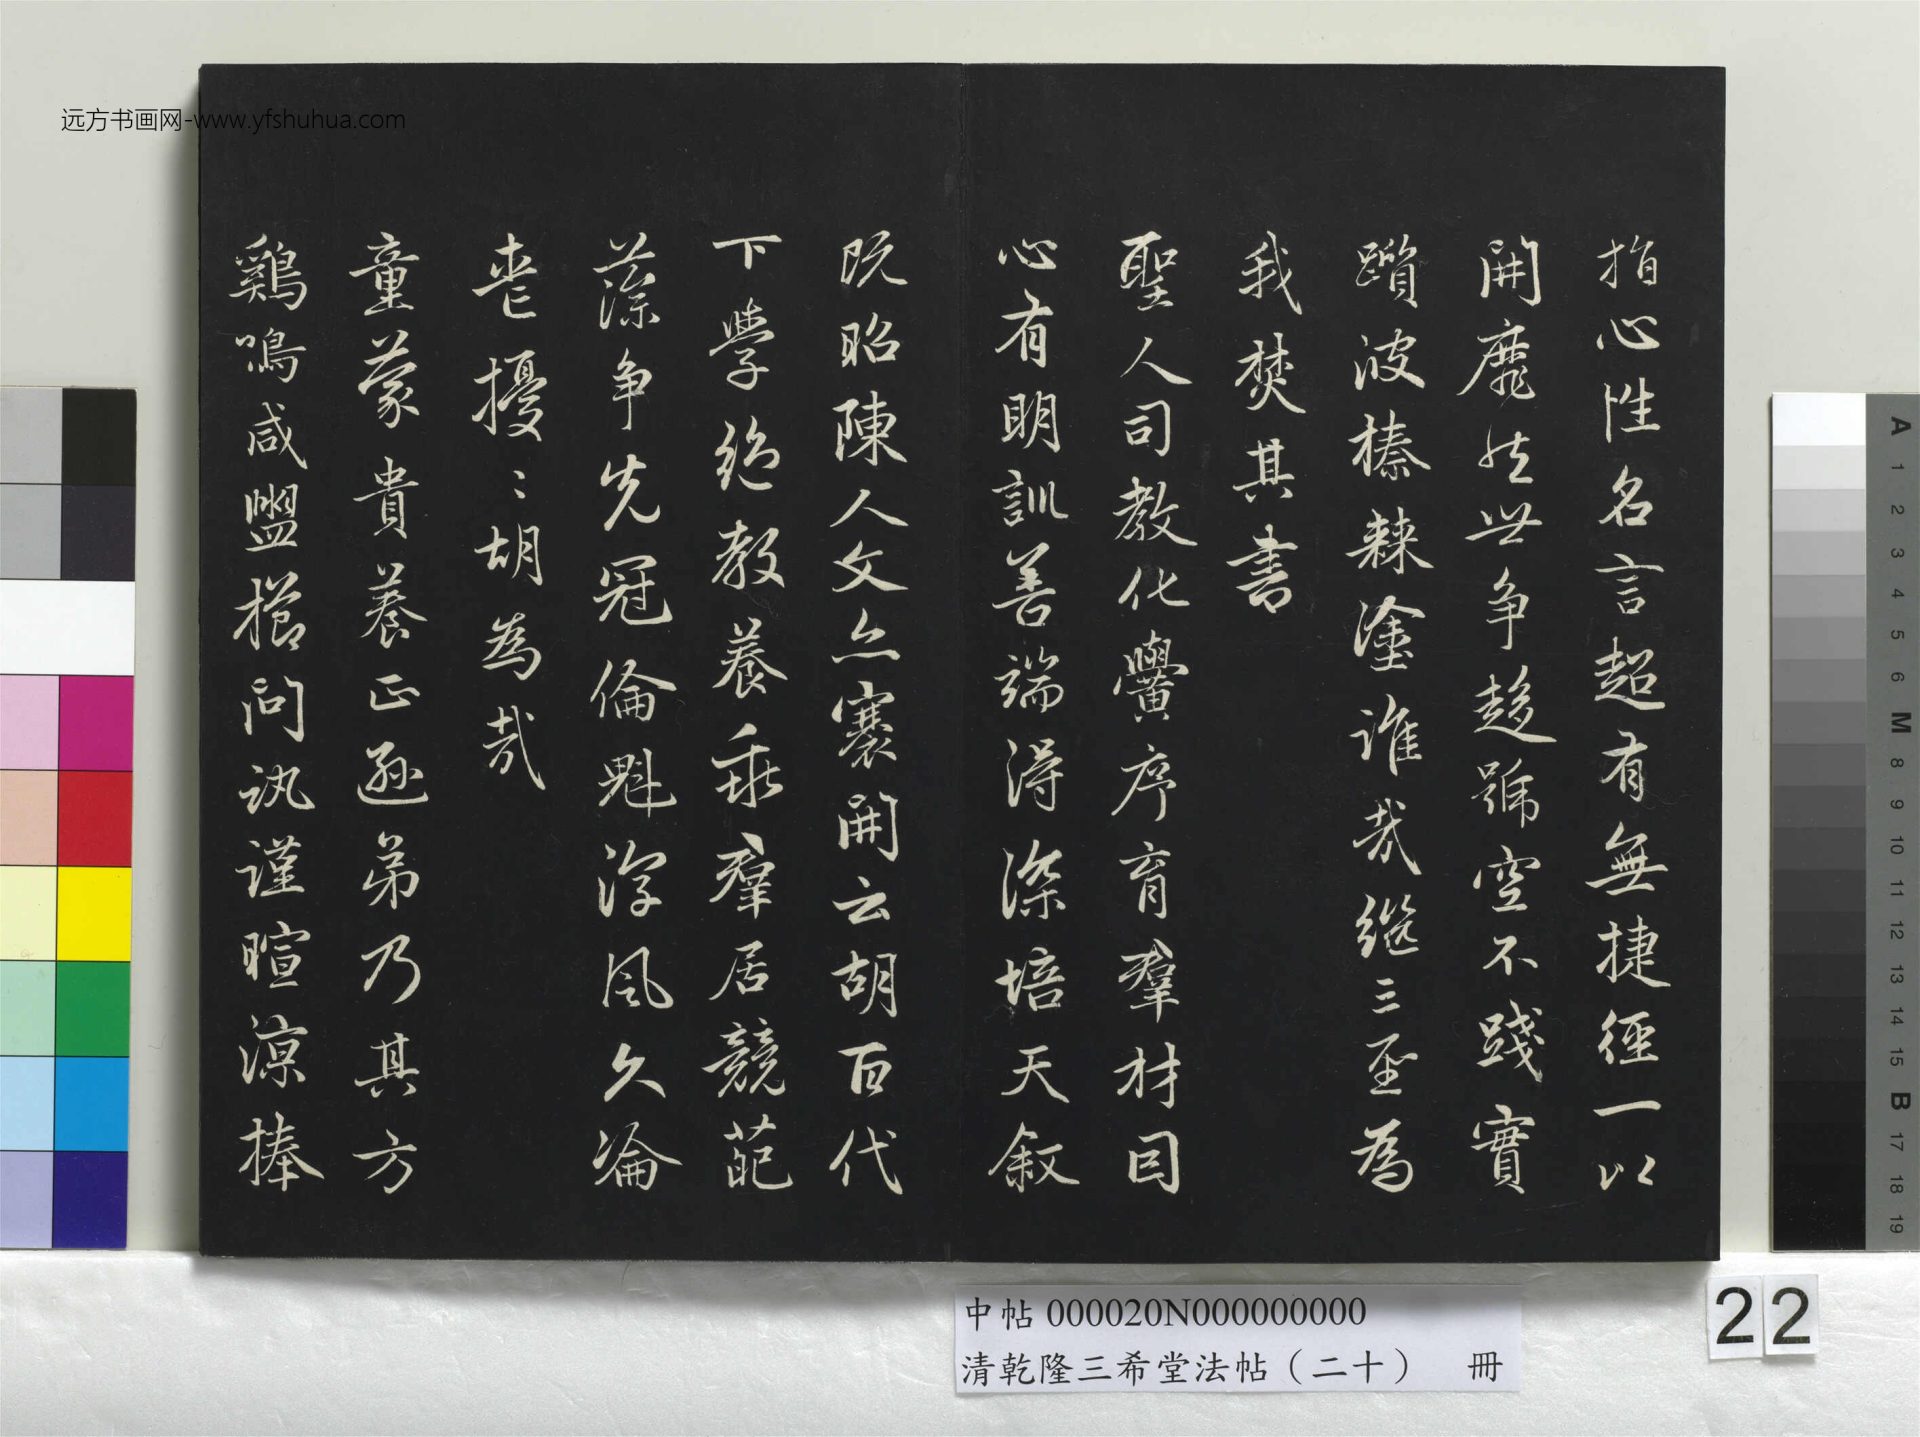 指心性名言超有無捷徑一以
開靡然世爭趨號空不踐實
躓彼榛棘塗誰哉繼三聖為
我焚其書
聖人司教化黌序育群材因
心有明訓善端得深培天敘
既昭陳人文亦褰開云胡百代
下學絕教養乖群居競葩
藻爭先冠倫魁淳風久淪
喪擾〻胡為哉
童蒙貴養正遜弟乃其方
鷄鳴咸盥櫛問訊謹暄涼捧
远方书画网-www.yfshuhua.com
中帖 000020N000000000
清乾隆三希堂法帖（二十） 冊
22
A 1 2 3 4 5 6 M 8 9 10 11 12 13 14 15 B 17 18 19